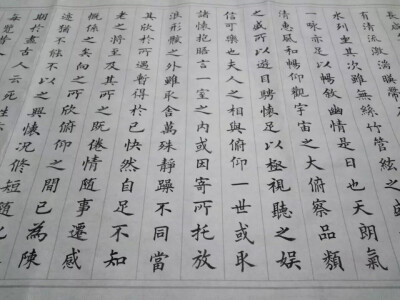 長咸
有清流激湍暎帶
水列坐其次雖無絲竹管絃之盛
一咏亦足以暢敘幽情是日也天朗氣
清惠風和暢仰觀宇宙之大俯察品類
之盛所以遊目騁懷足以極視聽之娛
信可樂也夫人之相與俯仰一世或取
諸懷抱晤言一室之内或因寄所托放
浪形骸之外雖取舍萬殊靜躁不同當
其欣於所遇暫得於己快然自足不知
老之將至及其所之既倦情隨事遷感
慨係之矣向之所欣俯仰之間已為陳
迹猶不能不以之興懷况修短隨化
期於盡古人云死生
每覽昔人